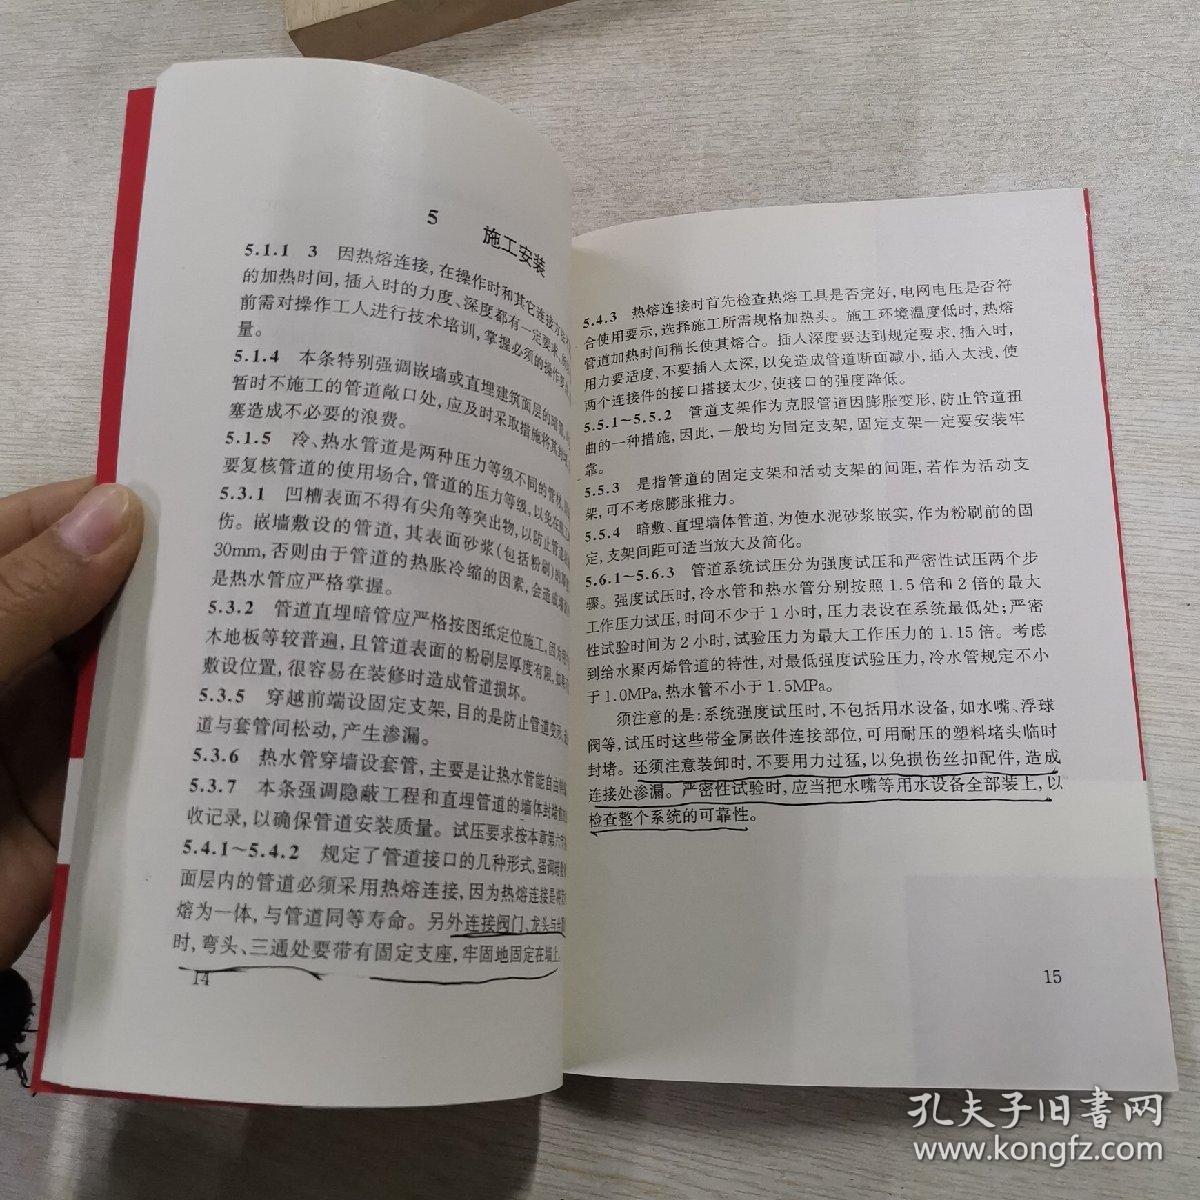 5 施工安装
5.1.1 3 因热熔连接,在操作时和其它连接
的加热时间,插入时的力度、深度都有一定要求,
前需对操作工人进行技术培训,掌握必须的操作
量。
5.1.4 本条特别强调嵌墙或直埋建筑面层的
暂时不施工的管道敞口处,应及时采取措施将其
塞造成不必要的浪费。
5.1.5 冷、热水管道是两种压力等级不同的管材,
要复核管道的使用场合,管道的压力等级,以免在
5.3.1 凹槽表面不得有尖角等突出物,以防止管道
伤。嵌墙敷设的管道,其表面砂浆(包括粉刷)的
30mm,否则由于管道的热胀冷缩的因素,会造成
是热水管应严格掌握。
5.3.2 管道直埋暗管应严格按图纸定位施工,因
木地板等较普遍,且管道表面的粉刷层厚度有限,如
敷设位置,很容易在装修时造成管道损坏。
5.3.5 穿越前端设固定支架,目的是防止管道变形,
道与套管间松动,产生渗漏。
5.3.6 热水管穿墙设套管,主要是让热水管能自由
5.3.7 本条强调隐蔽工程和直埋管道的墙体封墙
收记录,以确保管道安装质量。试压要求按本章第六
5.4.1~5.4.2 规定了管道接口的几种形式,强调
面层内的管道必须采用热熔连接,因为热熔连接是
熔为一体,与管道同等寿命。另外连接阀门、龙头与
时,弯头、三通处要带有固定支座,牢固地固定在墙上。
14
5.4.3 热熔连接时首先检查热熔工具是否完好,电网电压是否符
合使用要示,选择施工所需规格加热头。施工环境温度低时,热熔
管道加热时间稍长使其熔合。插人深度要达到规定要求,插入时,
用力要适度,不要插人太深,以免造成管道断面减小,插人太浅,使
两个连接件的接口搭接太少,使接口的强度降低。
5.5.1~5.5.2 管道支架作为克服管道因膨胀变形,防止管道扭
曲的一种措施,因此,一般均为固定支架,固定支架一定要安装牢
靠。
5.5.3 是指管道的固定支架和活动支架的间距,若作为活动支
架,可不考虑膨胀推力。
5.5.4 暗敷、直埋墙体管道,为使水泥砂浆嵌实,作为粉刷前的固
定,支架间距可适当放大及简化。
5.6.1~5.6.3 管道系统试压分为强度试压和严密性试压两个步
骤。强度试压时,冷水管和热水管分别按照1.5倍和2倍的最大
工作压力试压,时间不少于1小时,压力表设在系统最低处;严密
性试验时间为2小时,试验压力为最大工作压力的1.15倍。考虑
到给水聚丙烯管道的特性,对最低强度试验压力,冷水管规定不小
于1.0MPa,热水管不小于1.5MPa。
须注意的是:系统强度试压时,不包括用水设备,如水嘴、浮球
阀等,试压时这些带金属嵌件连接部位,可用耐压的塑料堵头临时
封堵。还须注意装卸时,不要用力过猛,以免损伤丝扣配件,造成
连接处渗漏。严密性试验时,应当把水嘴等用水设备全部装上,以
检查整个系统的可靠性。
15
孔夫子旧书网
www.kongfz.com